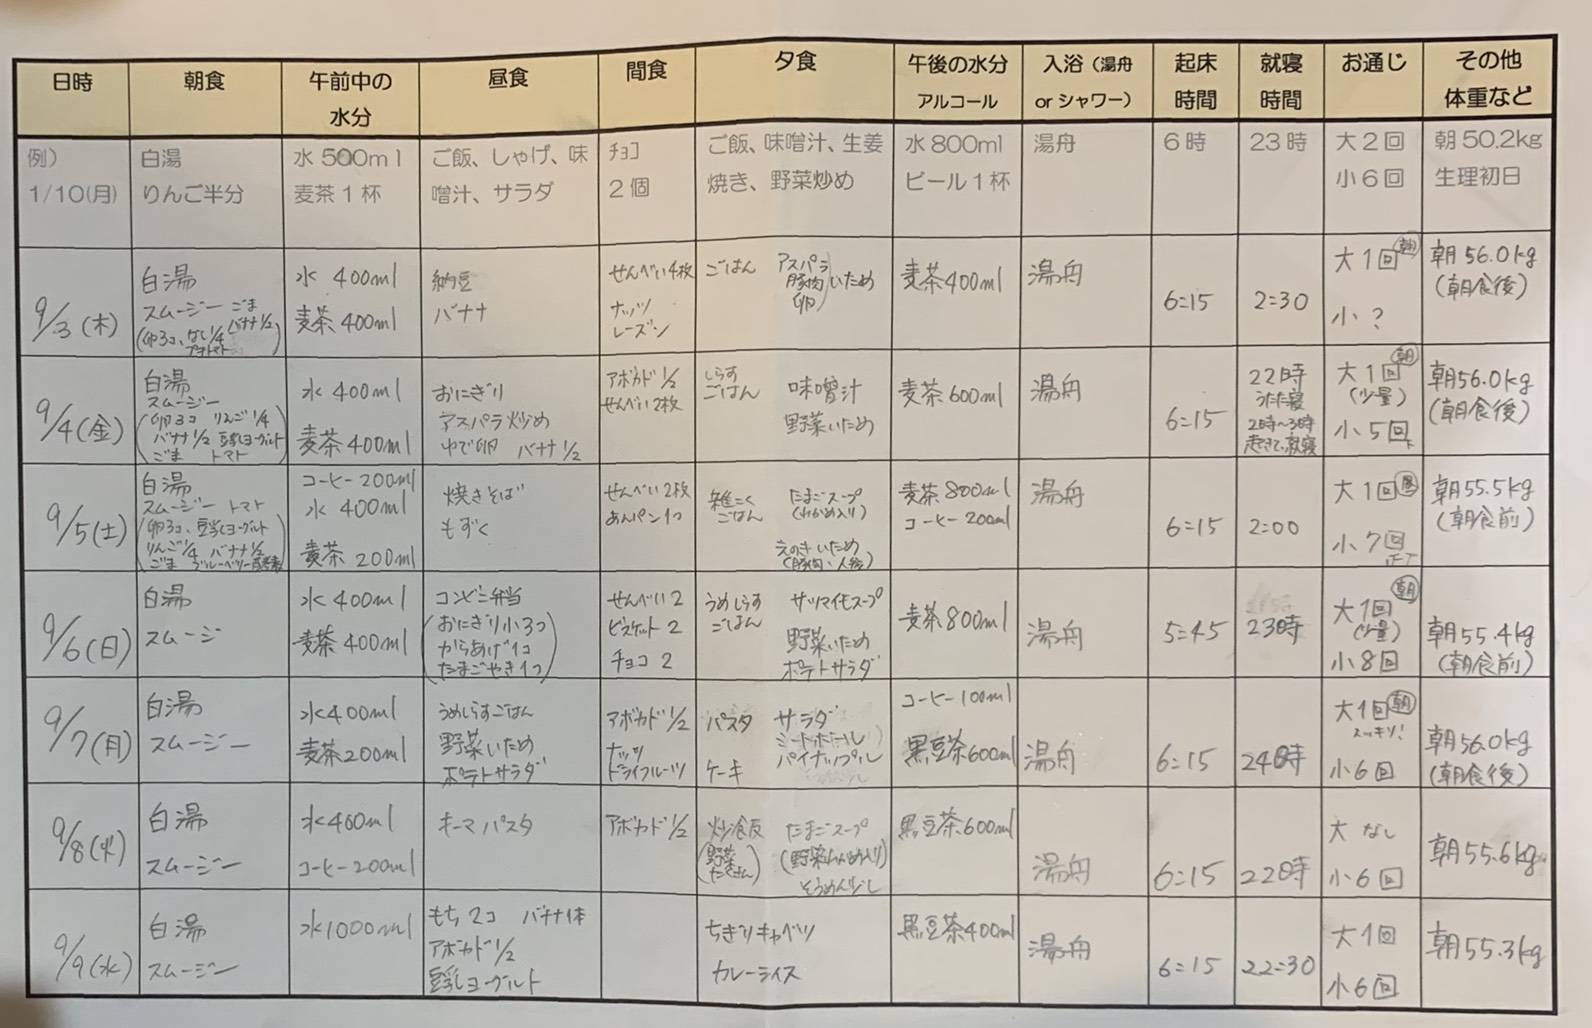 日時
朝食
午前中の
水分
昼食
間食
夕食
午後の水分
アルコール
入浴（湯舟
or シャワー）
起床
時間
就寝
時間
お通じ
その他
体重など
例）
1/10(月)
白湯
りんご半分
水 500ml
麦茶 1 杯
ご飯、しゃげ、味
噌汁、サラダ
チョコ
2個
ご飯、味噌汁、生姜
焼き、野菜炒め
水 800ml
ビール 1 杯
湯舟
6時
23時
大2回
小6回
朝 50.2kg
生理初日
9/3(木)
白湯
スムージー ごま
(卵3コ、なし1/4 バナナ1/2
プチトマト)
水 400ml
麦茶 400ml
納豆
バナナ
せんべい4枚
ナッツ
レーズン
ごはん
アスパラ
豚肉 いため
卵
麦茶400ml
湯舟
6:15
2:30
大1回 朝
小 ?
朝56.0kg
(朝食後)
9/4(金)
白湯
スムージー
卵3コ りんご1/4
バナナ1/2 豆乳ヨーグルト
ごま トマト
水 400ml
麦茶 400ml
おにぎり
アスパラ炒め
ゆで卵 バナナ1/2
アボカド1/2
せんべい2枚
しらす
ごはん
味噌汁
野菜いため
麦茶600ml
湯舟
6:15
22時
うたた寝
2時〜3時
起きて、就寝
大1回 朝
(少量)
小5回
朝56.0kg
(朝食後)
9/5(土)
白湯
スムージー トマト
卵3コ、豆乳ヨーグルト
りんご1/4 バナナ1/2
ごま ブルーベリー
コーヒー200ml
水 400ml
麦茶 200ml
焼きそば
もずく
せんべい2枚
あんパン1つ
雑こく
ごはん
たまごスープ
(わかめ入り)
えのきいため
(豚肉、人参)
麦茶800ml
コーヒー200ml
湯舟
6:15
2:00
大1回
小7回
朝55.5kg
(朝食前)
9/6(日)
白湯
スムージ
水400ml
麦茶400ml
コンビニ弁当
(おにぎり小3つ
からあげ1コ
たまごやき1つ)
せんべい2
ビスケット2
チョコ2
うめしらす
ごはん
サツマイモスープ
野菜いため
ポテトサラダ
麦茶800ml
湯舟
5:45
23時
大1回 朝
(少量)
小8回
朝55.4kg
(朝食前)
9/7(月)
白湯
スムージー
水400ml
麦茶200ml
うめしらすごはん
野菜いため
ポテトサラダ
アボカド1/2
ナッツ
ドライフルーツ
パスタ
ケーキ
サラダ
ミートボール
パイナップル
コーヒー100ml
黒豆茶600ml
湯舟
6:15
24時
大1回 朝
スッキリ!
小6回
朝56.0kg
(朝食後)
9/8(火)
白湯
スムージー
水400ml
コーヒー200ml
キーマパスタ
アボカド1/2
炒飯
(野菜
たくさん)
たまごスープ
(野菜わかめ入り)
そうめん少し
黒豆茶600ml
湯舟
6:15
22時
大 なし
小6回
朝55.6kg
9/9(水)
白湯
スムージー
水1000ml
もち2コ バナナ1本
アボカド1/2
豆乳ヨーグルト
ちぎりキャベツ
カレーライス
黒豆茶400ml
湯舟
6:15
22:30
大1回
小6回
朝55.3kg